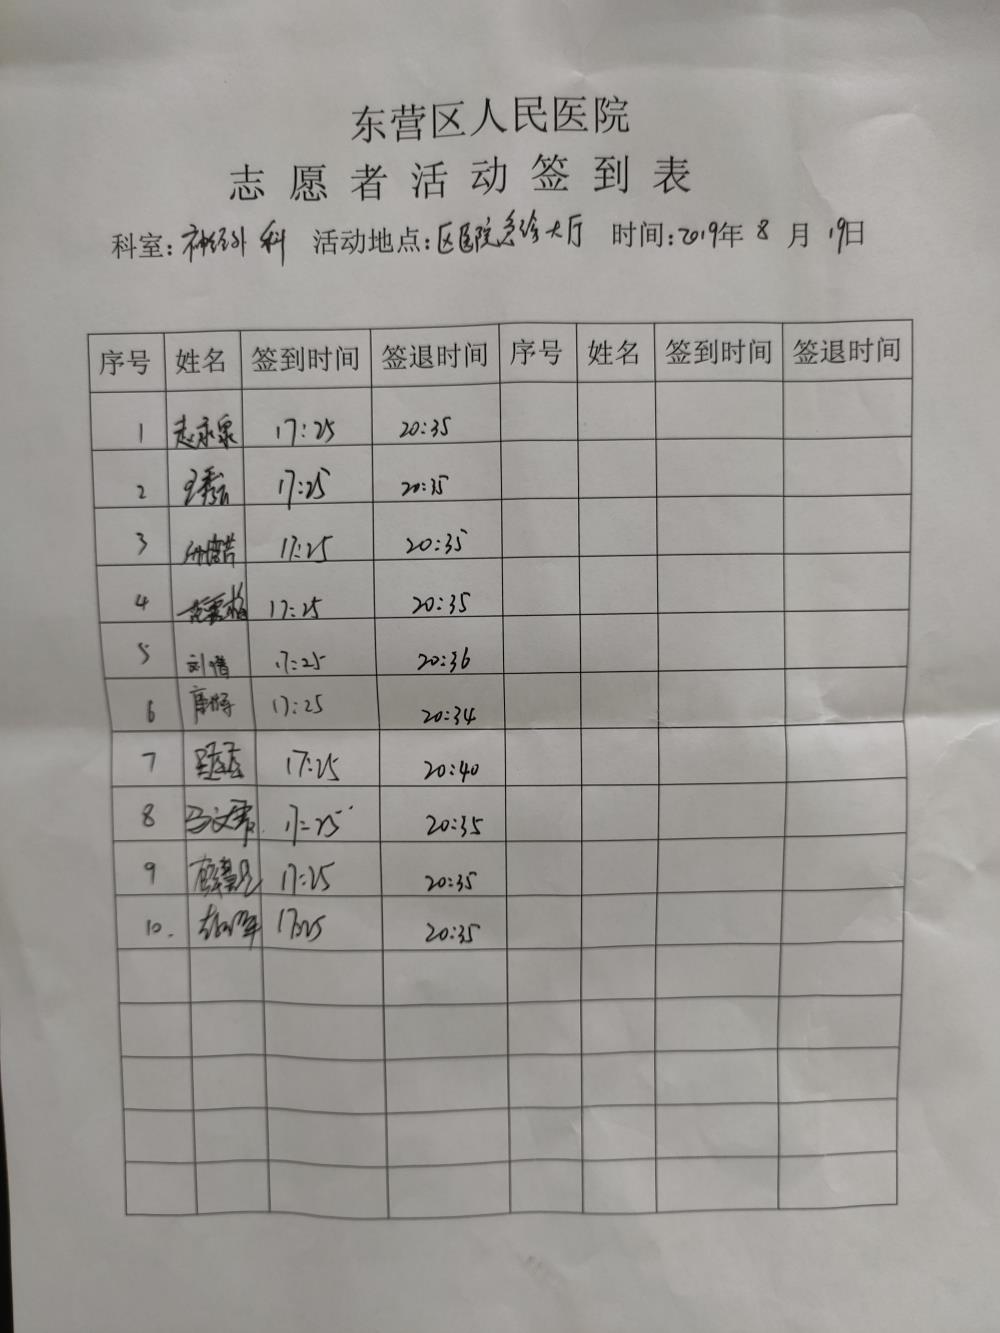 东营区人民医院
志愿者活动签到表
科室:神经外科 活动地点:区医院急诊大厅 时间:2019年8月19日
序号 姓名 签到时间 签退时间 序号 姓名 签到时间 签退时间
1 17:25 20:35
2 17:25 20:35
3 17:25 20:35
4 17:25 20:35
5 17:25 20:36
6 17:25 20:34
7 17:25 20:40
8 马文 17:25 20:35
9 17:25 20:35
10. 17:25 20:35